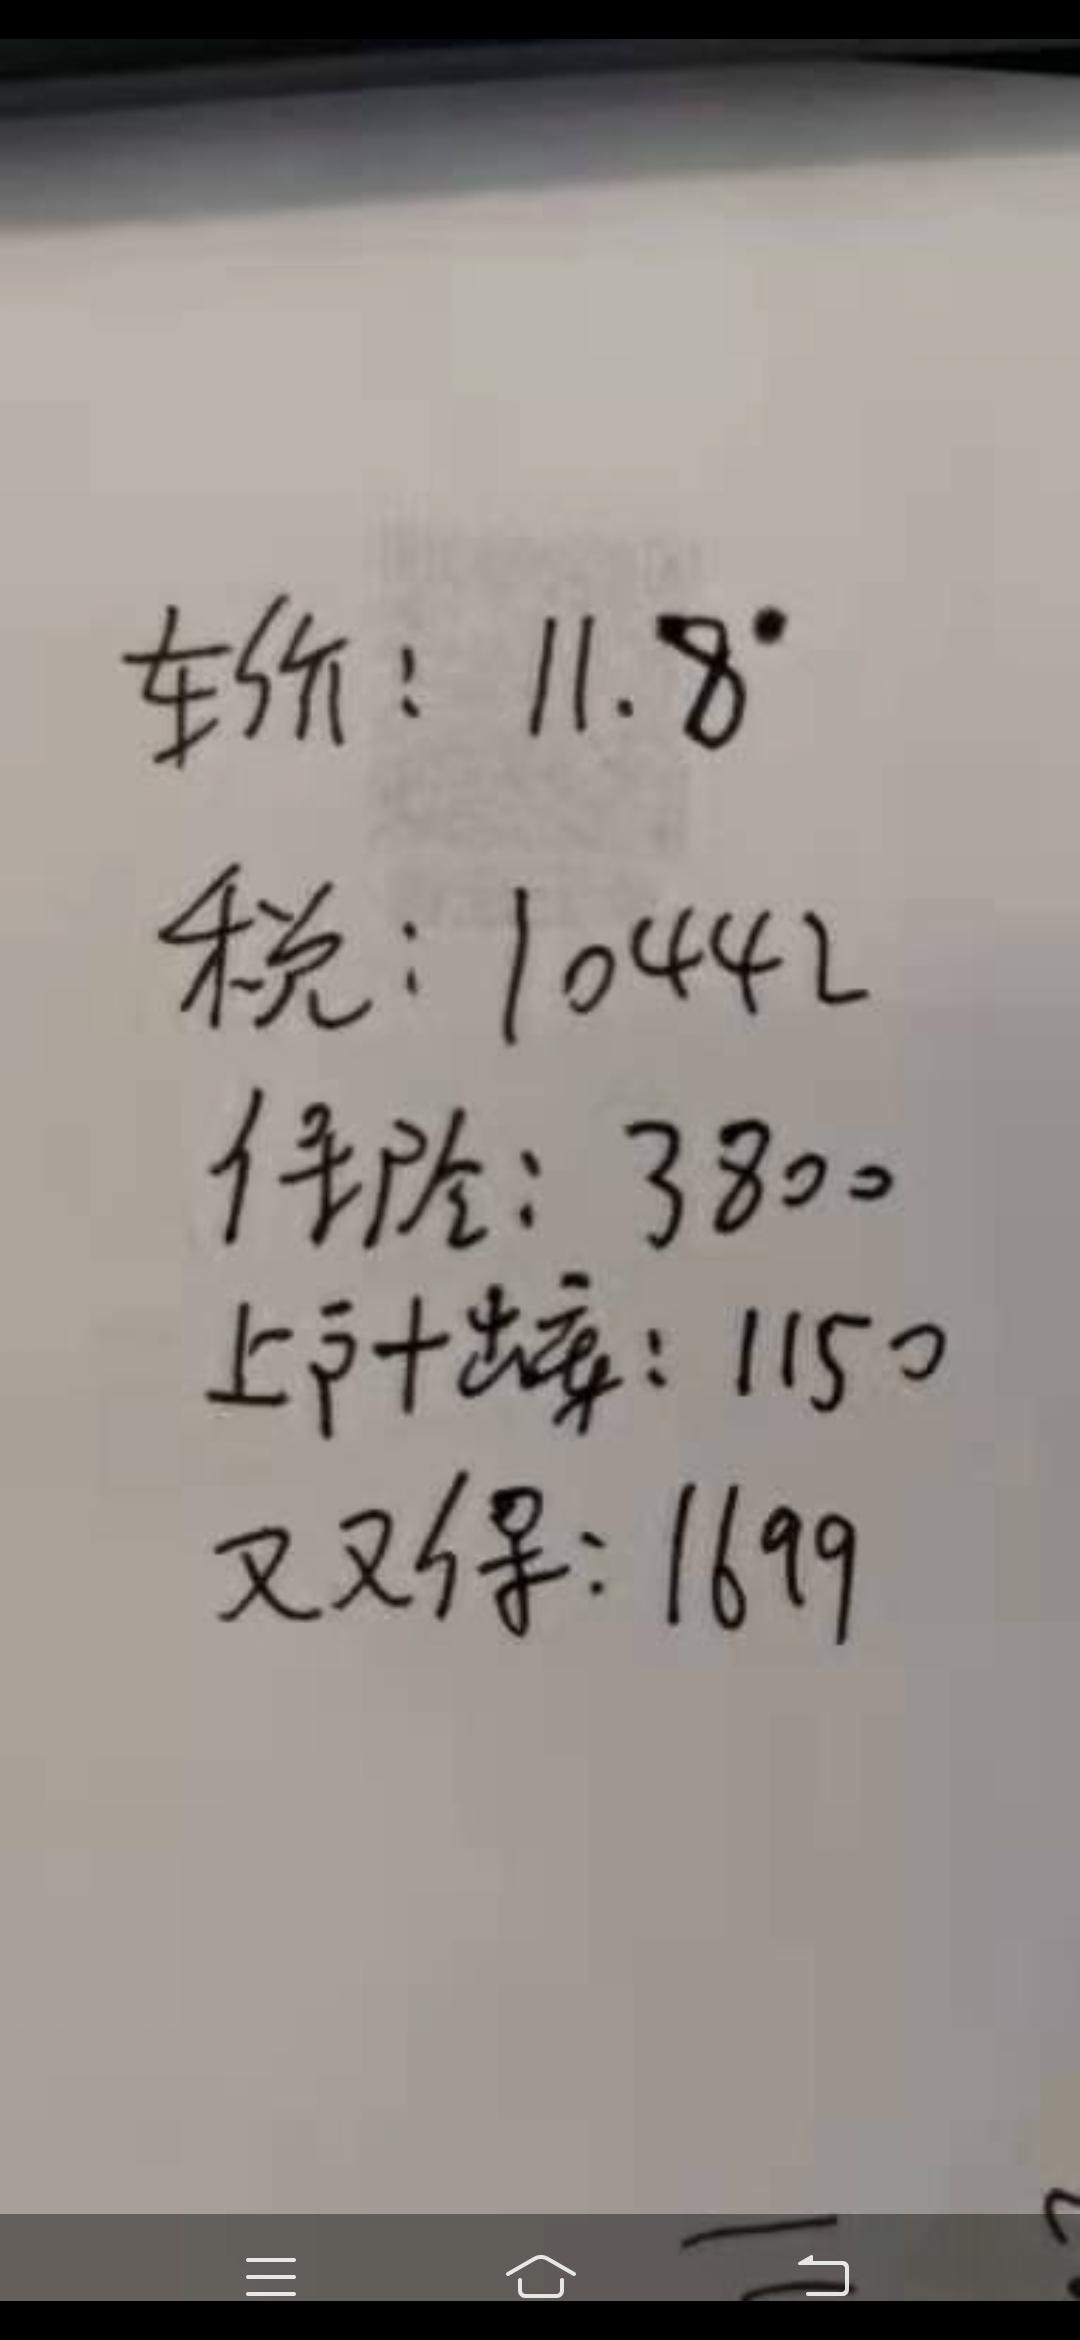 车价：11.8
税：10442
保险：3800
上户+出库：1150
又又保：1699